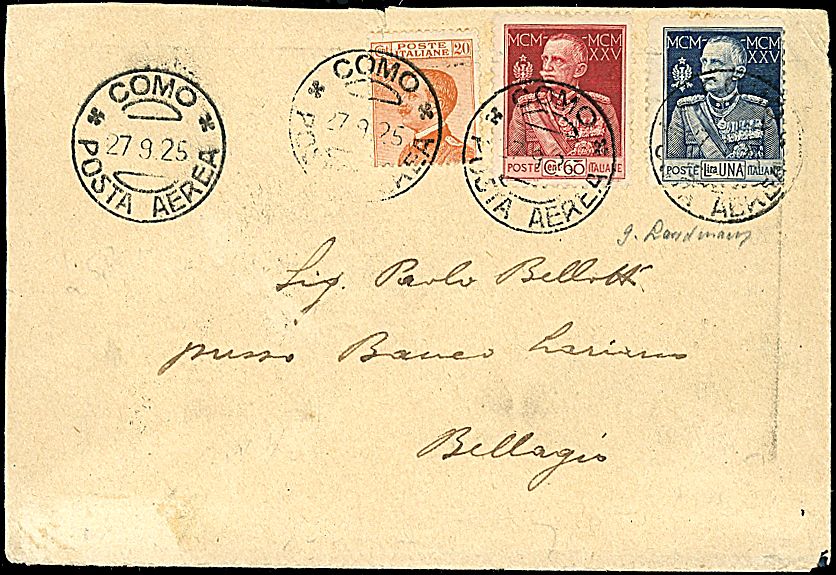 COMO
27.9.25
POSTA AEREA
POSTE
ITALIANE 20
COMO
27.9.25
POSTA AEREA
MCM MCM
XXV
POSTE Cent 60 ITALIANE
COMO
POSTA AEREA
MCM MCM
XXV
POSTE Lire UNA ITALIANE
POSTA AEREA
Sig. Paolo Bellotti
presso Banco Lariano
Bellagio